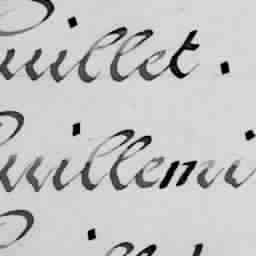 uillet.
uillemi